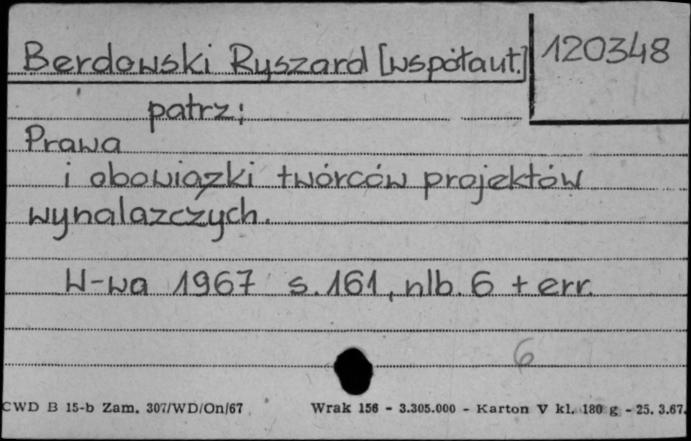 Berdowski Ryszard [współaut.] 120348
patrz:
Prawa
i obowiązki twórców projektów
wynalazczych.
W-wa 1967 s. 161, nlb. 6 + err.
6
CWD B 15-b Zam. 307/WD/On/67 Wrak 156 - 3.305.000 - Karton V kl. 180 g - 25. 3.67.